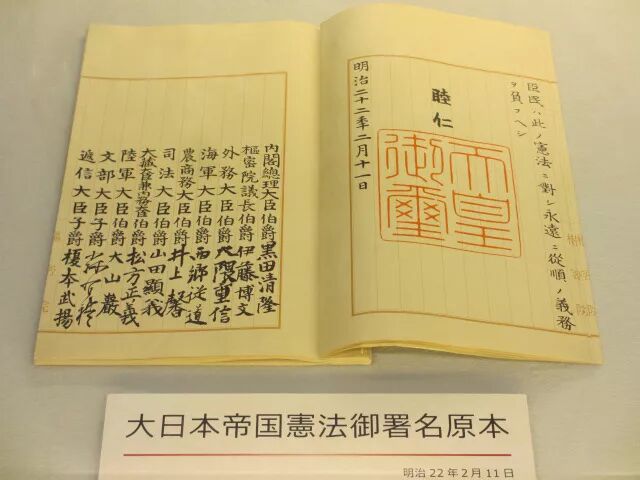 臣民ハ此ノ憲法ニ對シ永遠ニ從順ノ義務
ヲ負フヘシ
睦仁
天皇御璽
明治二十二年二月十一日
内閣總理大臣伯爵黒田清隆
樞密院議長伯爵伊藤博文
外務大臣伯爵大隈重信
海軍大臣伯爵西郷從道
農商務大臣伯爵井上馨
司法大臣伯爵山田顯義
大藏大臣兼内務大臣伯爵松方正義
陸軍大臣伯爵大山巖
文部大臣子爵森有禮
遞信大臣子爵榎本武揚
大日本帝国憲法御署名原本
明治22年2月11日